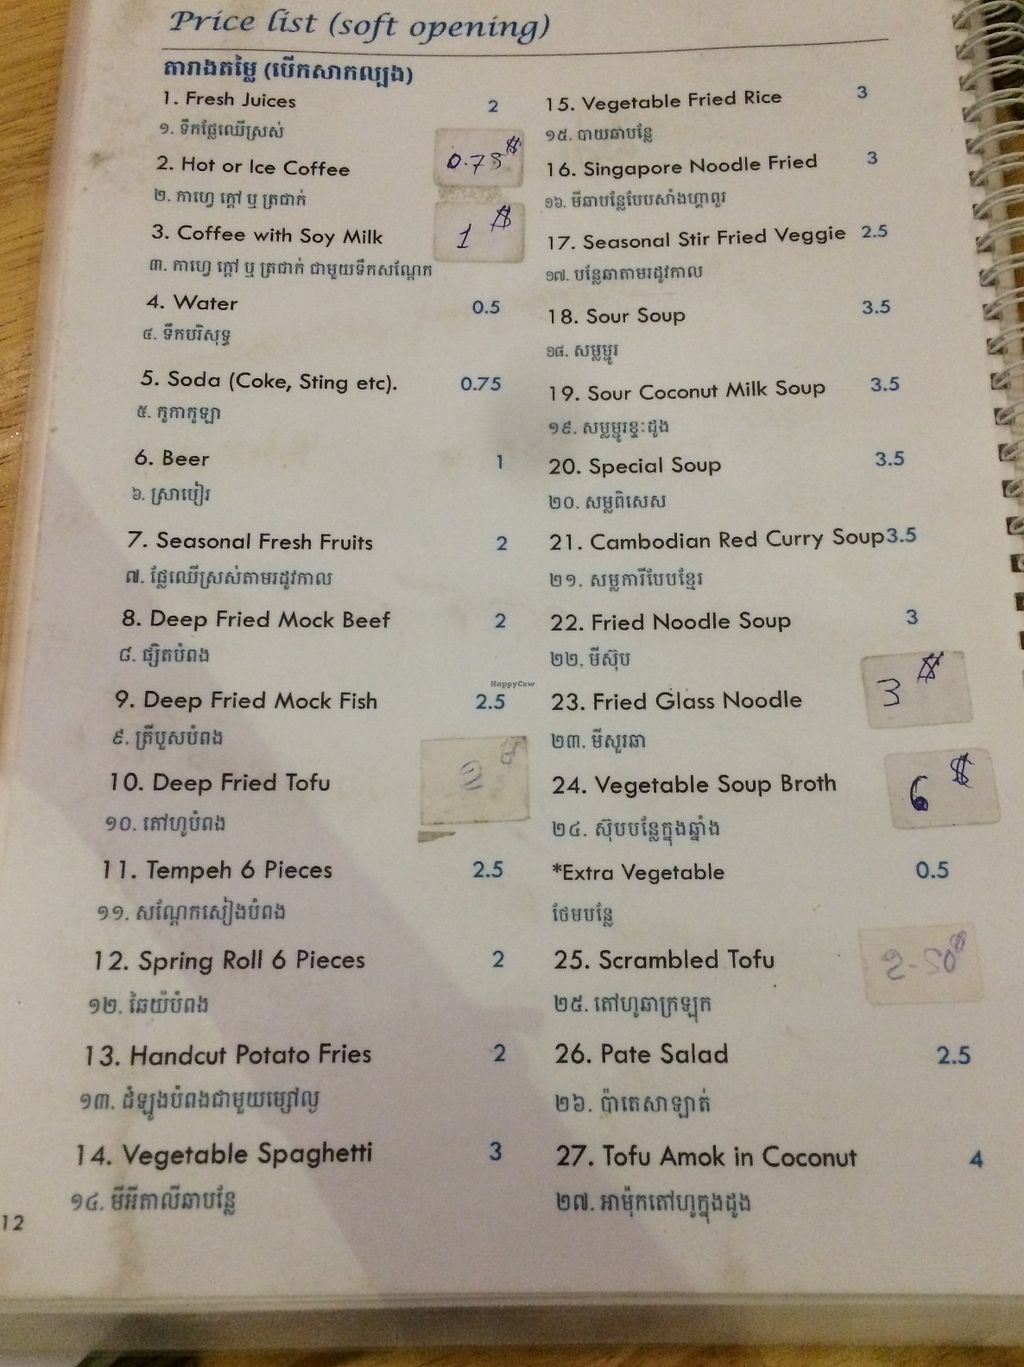 Price list (soft opening)
តារាងតម្លៃ (បើកសាកល្បង)
1. Fresh Juices 2
១. ទឹកផ្លែឈើស្រស់
2. Hot or Ice Coffee 0.75$
២. កាហ្វេ ក្តៅ ឬ ត្រជាក់
3. Coffee with Soy Milk 1$
៣. កាហ្វេ ក្តៅ ឬ ត្រជាក់ ជាមួយទឹកសណ្តែក
4. Water 0.5
៤. ទឹកបរិសុទ្ធ
5. Soda (Coke, Sting etc). 0.75
៥. កូកាកូឡា
6. Beer 1
៦. ស្រាបៀរ
7. Seasonal Fresh Fruits 2
៧. ផ្លែឈើស្រស់តាមរដូវកាល
8. Deep Fried Mock Beef 2
៨. ផ្សិតបំពង
9. Deep Fried Mock Fish 2.5
៩. ត្រីបួសបំពង
10. Deep Fried Tofu 2$
១០. តៅហូបំពង
11. Tempeh 6 Pieces 2.5
១១. សណ្តែកសៀងបំពង
12. Spring Roll 6 Pieces 2
១២. ឆៃយ៉បំពង
13. Handcut Potato Fries 2
១៣. ដំឡូងបំពងជាមួយម្សៅល្ង
14. Vegetable Spaghetti 3
១៤. មីអីតាលីឆាបន្លែ
12
15. Vegetable Fried Rice 3
១៥. បាយឆាបន្លែ
16. Singapore Noodle Fried 3
១៦. មីឆាបន្លែបែបសាំងហ្គាពួរ
17. Seasonal Stir Fried Veggie 2.5
១៧. បន្លែឆាតាមរដូវកាល
18. Sour Soup 3.5
១៨. សម្លម្ជូរ
19. Sour Coconut Milk Soup 3.5
១៩. សម្លម្ជូរខ្ទះដូង
20. Special Soup 3.5
២០. សម្លពិសេស
21. Cambodian Red Curry Soup 3.5
២១. សម្លការីបែបខ្មែរ
22. Fried Noodle Soup 3
២២. មីស៊ុប
23. Fried Glass Noodle 3$
២៣. មីសួរឆា
24. Vegetable Soup Broth 6$
២៤. ស៊ុបបន្លែក្នុងឆ្នាំង
*Extra Vegetable 0.5
ថែមបន្លែ
25. Scrambled Tofu 2-50$
២៥. តៅហូឆាក្រឡុក
26. Pate Salad 2.5
២៦. ប៉ាតេសាឡាត់
27. Tofu Amok in Coconut 4
២៧. អាម៉ុកតៅហូក្នុងដូង
HappyCow